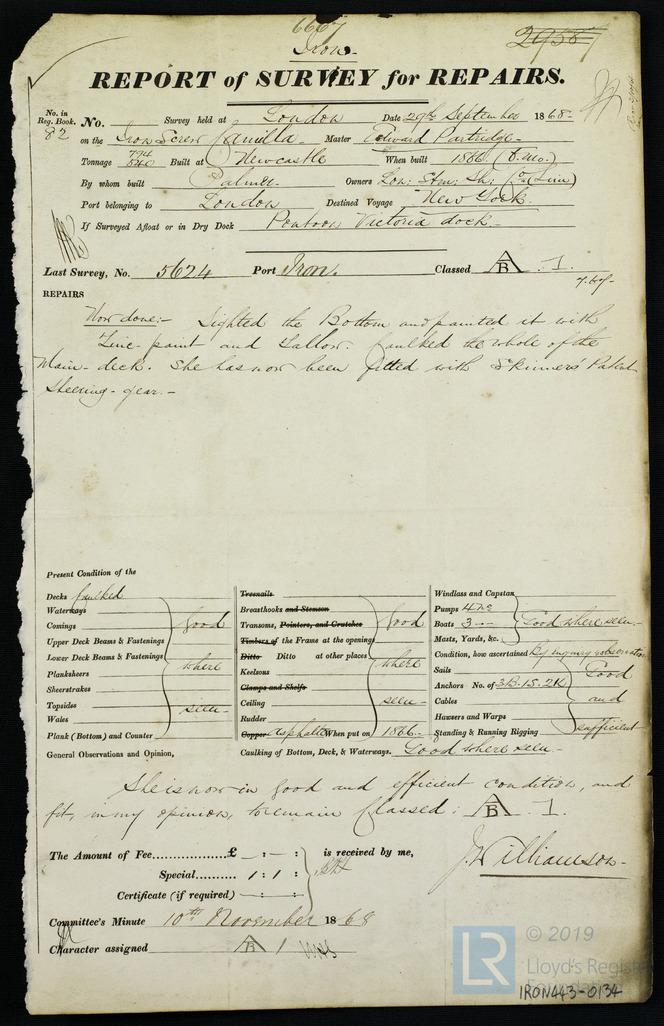 6667
Iron.
2958
REPORT of SURVEY for REPAIRS.
No. in Reg. Book. 82
No. Survey held at London Date 29th September 1868
on the Iron Screw Master Edward Partridge
Tonnage 794 640 Built at Newcastle When built 1866
By whom built Palmer Owners Lon: Stm: Sh: Co
Port belonging to London Destined Voyage New York.
If Surveyed Afloat or in Dry Dock Pontoon Victoria dock
Last Survey, No. 5624 Port Iron. Classed A B .1.
REPAIRS
Now done:- Sighted the Bottom and painted it with
Zinc paint and Tallow. Caulked the whole of the
Main-deck. She has now been fitted with Skinners Patent
Steering-gear.-
Present Condition of the
Decks Caulked
Waterways
Comings
Upper Deck Beams & Fastenings
Lower Deck Beams & Fastenings
Planksheers
Sheerstrakes
Topsides
Wales
Plank (Bottom) and Counter
Good where seen-
Treenails
Breasthooks and Stemson
Transoms, Pointers, and Crutches
Timbers of the Frame at the openings
Ditto Ditto at other places
Keelsons
Clamps and Shelfs
Ceiling
Rudder
Copper Asphalte When put on 1866-
Good where seen-
Windlass and Capstan
Pumps
Boats 3
Masts, Yards, &c.
Good where seen-
Condition, how ascertained By inquiry & observation
Sails
Anchors No. of 3B. 1S. 2K
Cables
Hawsers and Warps
Standing & Running Rigging
Good and sufficient
General Observations and Opinion, Caulking of Bottom, Deck, & Waterways. Good where seen-
She is now in good and efficient condition, and
fit, in my opinion, to remain Classed: A B .1.
The Amount of Fee £ - : - : is received by me,
Special 1 : 1 :
Certificate (if required) - : - :
J. Williamson-
Committee's Minute 10th November 1868
Character assigned A B 1
LR © 2019
Lloyd's Register
Foundation
IRON443-0134